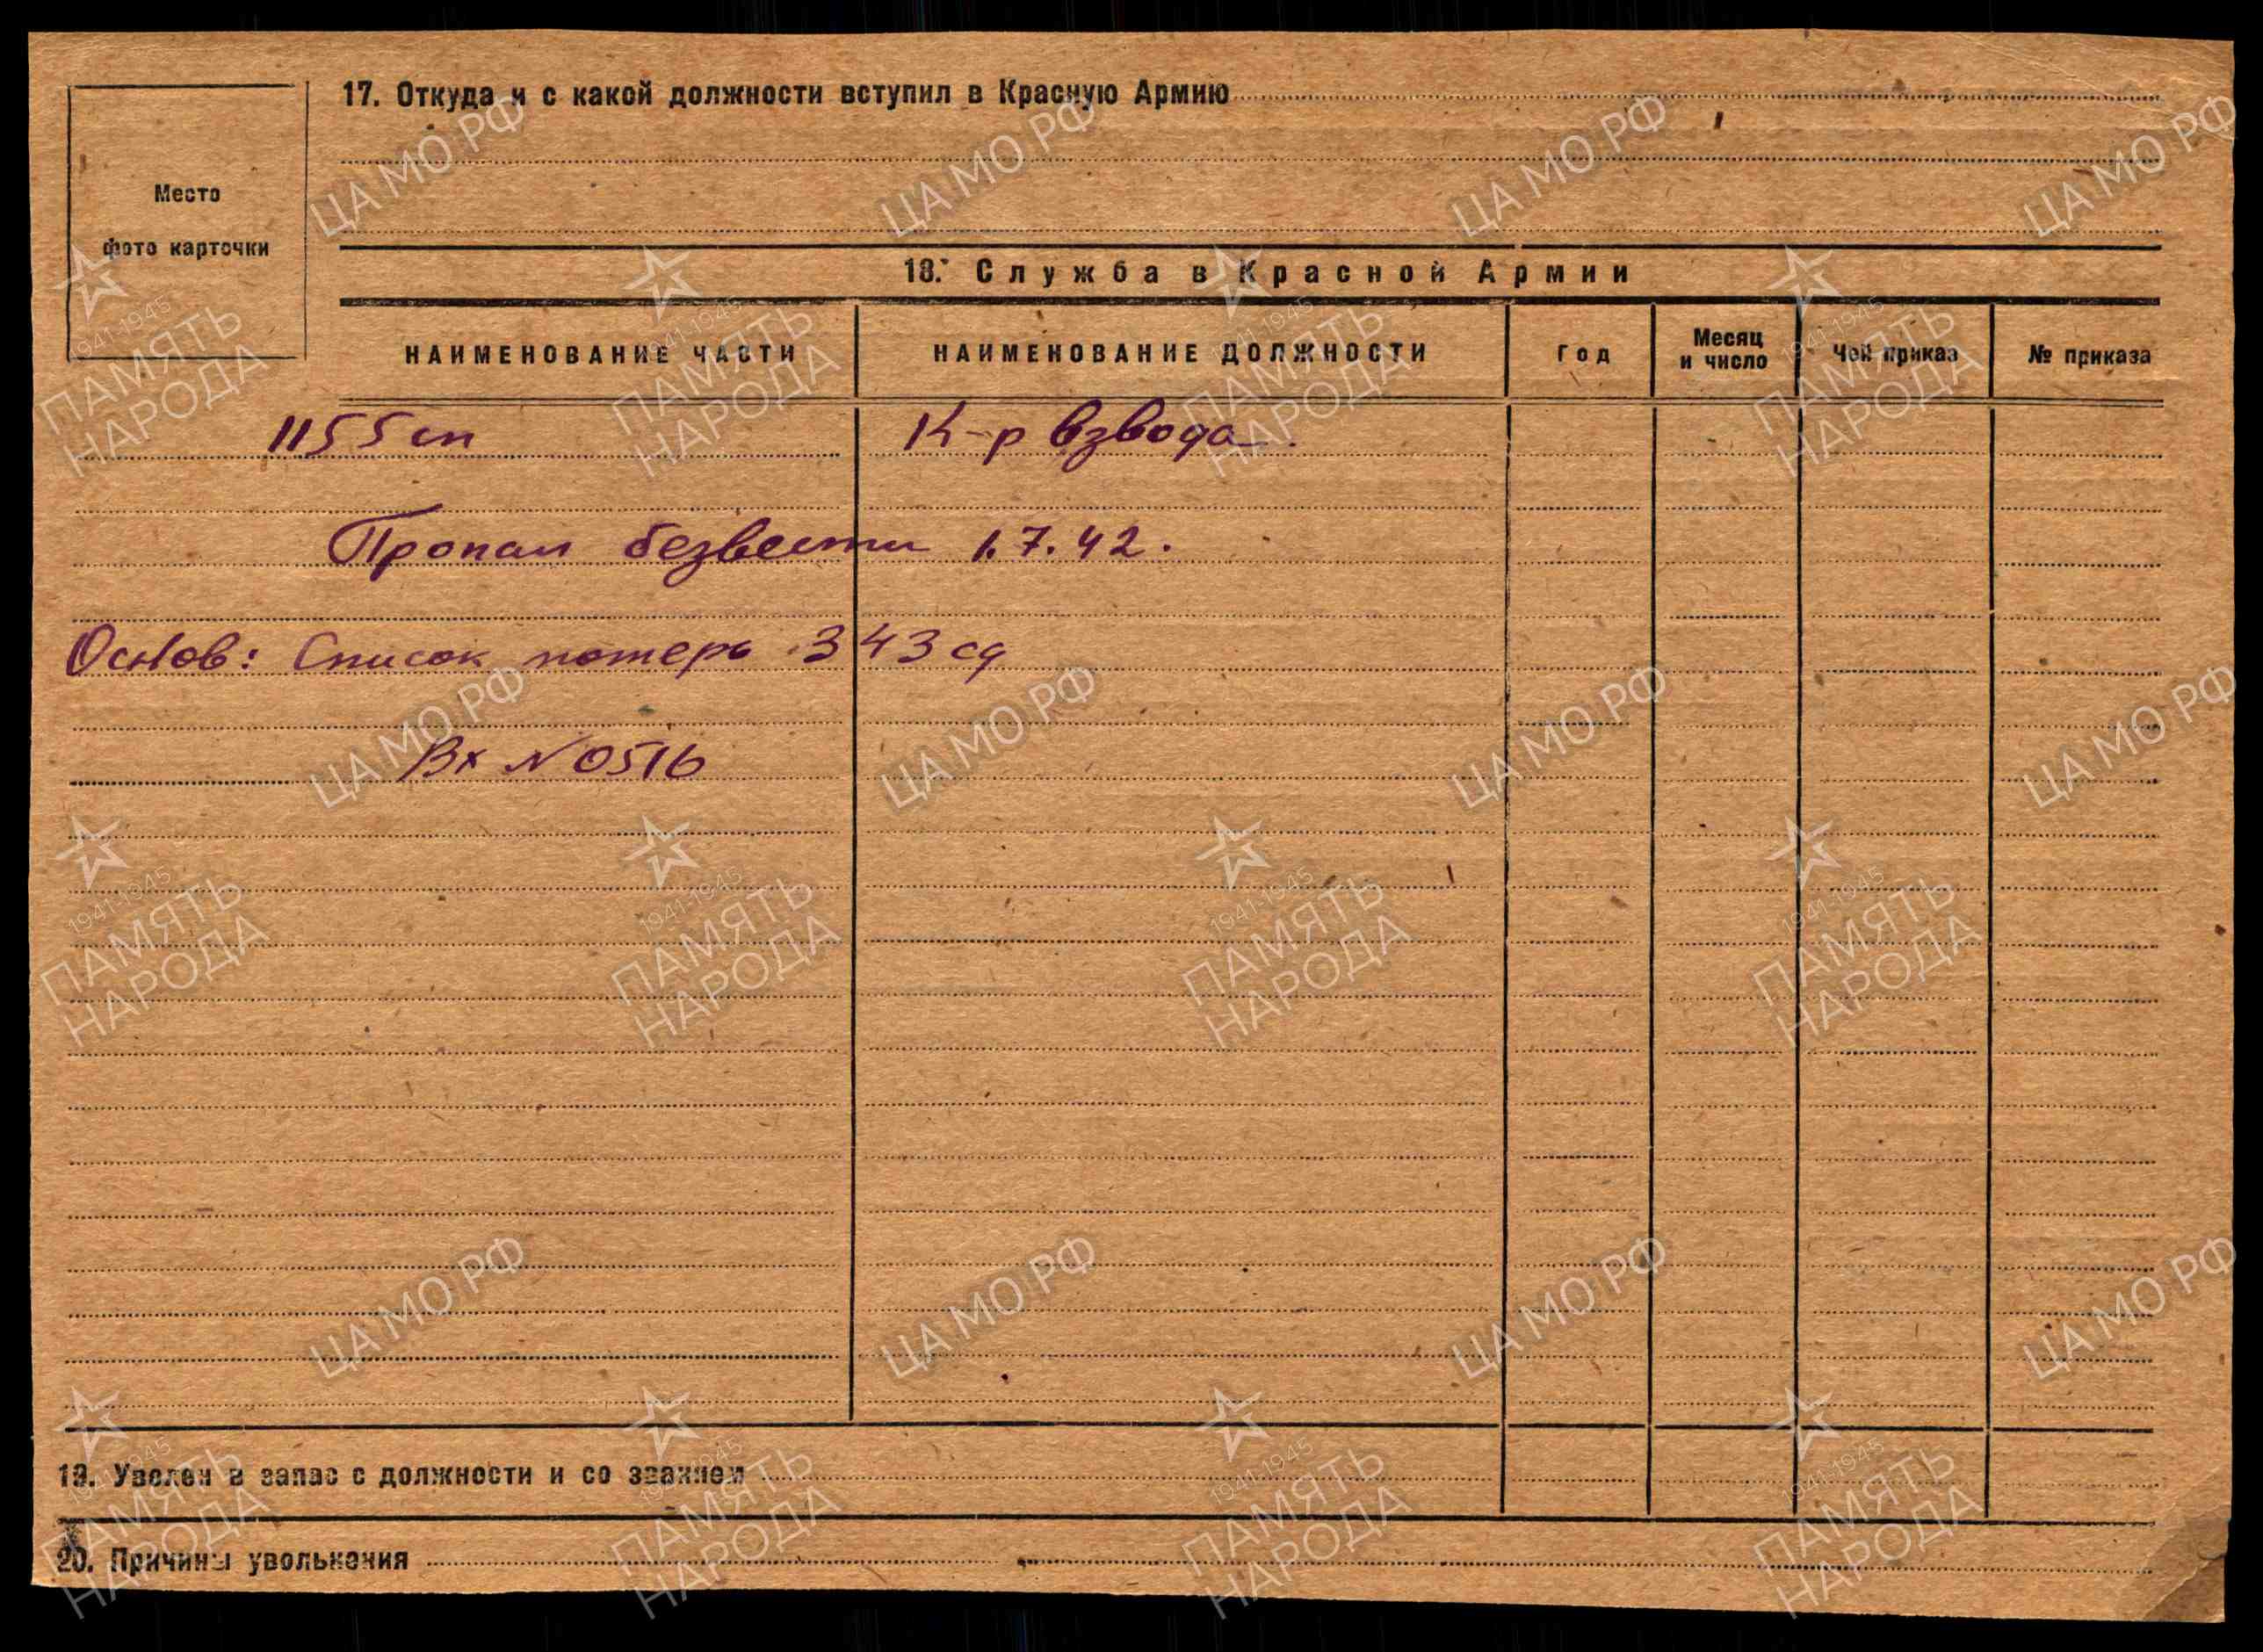 17. Откуда и с какой должности вступил в Красную Армию
Место
фото карточки
18. Служба в Красной Армии
НАИМЕНОВАНИЕ ЧАСТИ НАИМЕНОВАНИЕ ДОЛЖНОСТИ Год Месяц и число Чей приказ № приказа
1155 сп К-р взвода.
Пропал безвести 1.7.42.
Основ: Список потерь 343 сд
Вх N 0516
19. Уволен в запас с должности и со званием
20. Причины увольнения
ЦА МО РФ
1941-1945
ПАМЯТЬ
НАРОДА